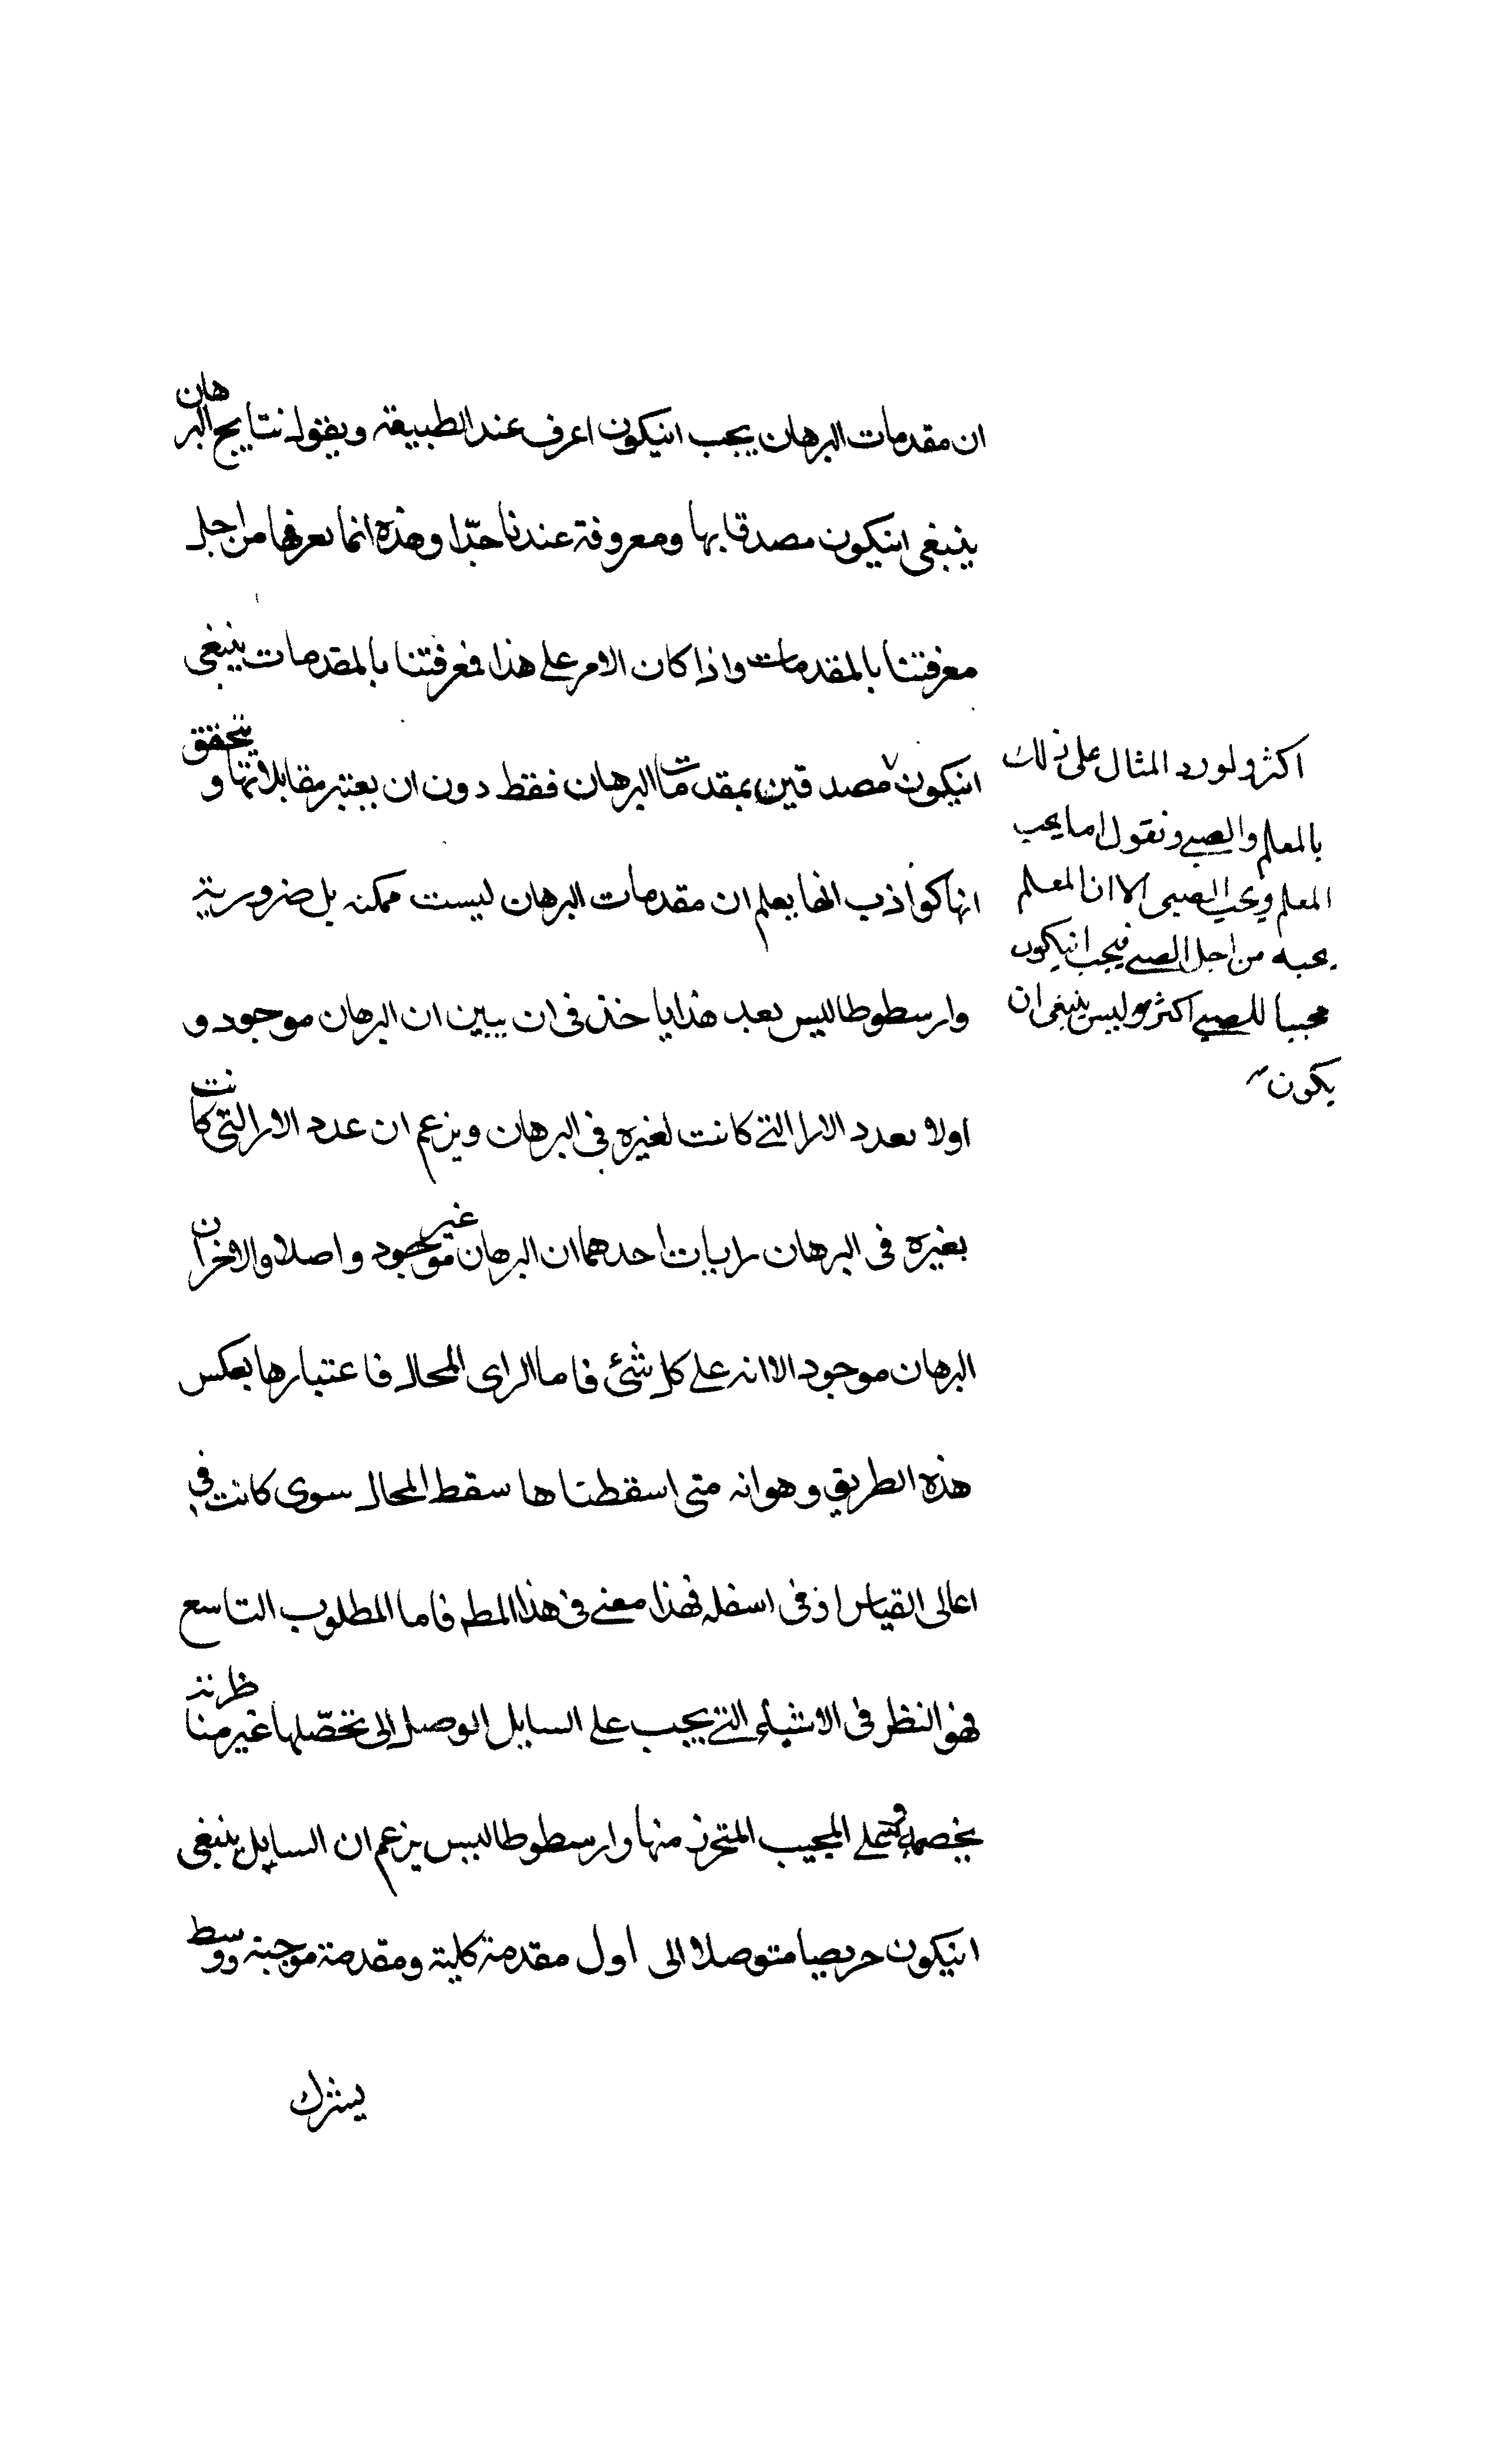 ان مقدمات البرهان يجب انيكون اعرف عند الطبيعة ويقول نتايج البرهان
ينبغى انيكون مصدقا بها ومعروفة عندنا جدّا وهذه انما نعرفها من اجل
معرفتنا بالمقدمات واذا كان الامر على هذا فمعرفتنا بالمقدمات ينبغى
انيكون مصدقين بمقدمات البرهان فقط دون ان يعتبر مقابلاتها و يتحقق
انها كواذب انما يعلم ان مقدمات البرهان ليست ممكنه بل ضرورية
وارسطوطاليس بعد هذا ياخذ فى ان يبين ان البرهان موجود و
اولا يعدد الارا التى كانت لغيره فى البرهان ويزعم ان عدد الارا التى كانت
بغيره فى البرهان رايان احدهما ان البرهان غير موجود اصلا والاخر ان
البرهان موجود الا انه على كل شئ فاما الراى المحال فاعتبارها بعكس
هذه الطريق وهو انه متى اسقطناها سقط المحال سوى كانت فى
اعالى القياس او فى اسفله فهذا معنى فى هذا المط فاما المطلوب التاسع
فهو النظر فى الاشياء التى يجب على السايل الوصل الى تحصّلها غير مناظرته
بخصمه وعلى المجيب المتحرز منها وارسطوطاليس يزعم ان السايل ينبغى
انيكون حريصا متوصلا الى اول مقدمة كلية ومقدمة موجبة ووسط
يشترك
اكثر ولنورد المثال على ذلك
بالمعلم والصبى ونقول اما يحب
المعلم ويحب الصبى الا ان المعلم
يحبه من اجل الصبى فيجب انيكون
محبا للصبى اكثر وليس ينبغى ان
يكون